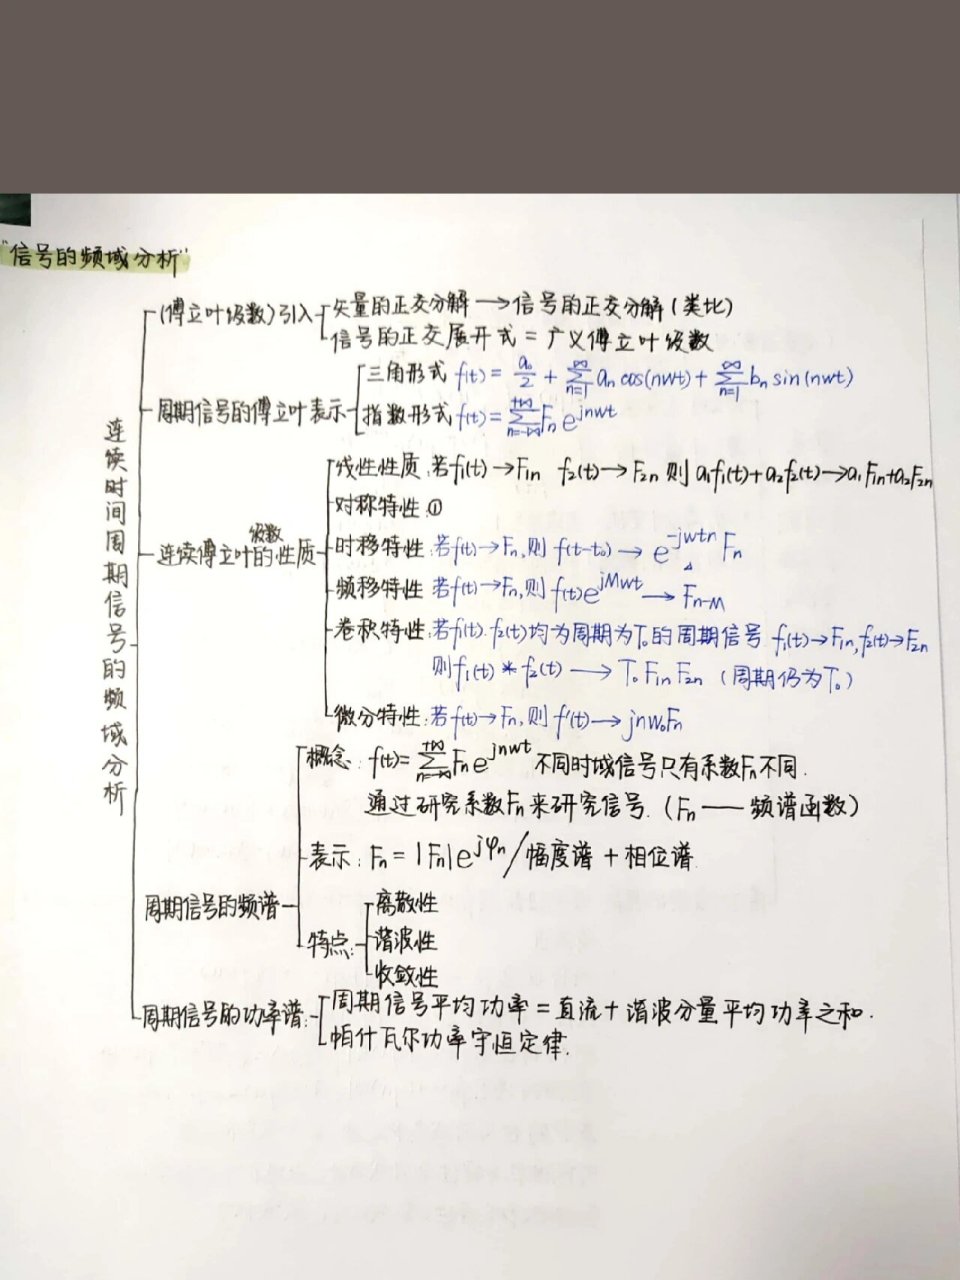 "信号的频域分析"
连续时间周期信号的频域分析
(傅立叶级数)引入
矢量的正交分解→信号的正交分解(类比)
信号的正交展开式=广义傅立叶级数
周期信号的傅立叶表示
三角形式 f(t)= a₀/2 + ∑_{n=1}^{∞} aₙ cos(nwt)+ ∑_{n=1}^{∞} bₙ sin(nwt)
指数形式 f(t)= ∑_{n=-∞}^{+∞} Fₙ e^{jnwt}
连续傅立叶级数的性质
线性性质:若f₁(t)→F₁ₙ f₂(t)→F₂ₙ 则 a₁f₁(t)+a₂f₂(t)→a₁F₁ₙ+a₂F₂ₙ
对称特性:①
时移特性:若f(t)→Fₙ,则 f(t-t₀)→ e^{-jwtn} Fₙ
频移特性:若f(t)→Fₙ,则 f(t)e^{jMwt} → F_{n-M}
卷积特性:若f₁(t).f₂(t)均为周期为T₀的周期信号.f₁(t)→F₁ₙ,f₂(t)→F₂ₙ
则f₁(t) * f₂(t) → T₀F₁ₙF₂ₙ (周期仍为T₀)
微分特性:若f(t)→Fₙ,则 f'(t)→jnw₀Fₙ
周期信号的频谱
概念: f(t)= ∑_{n=-∞}^{+∞} Fₙ e^{jnwt} 不同时域信号只有系数Fₙ不同.
通过研究系数Fₙ来研究信号.(Fₙ——频谱函数)
表示: Fₙ = |Fₙ|e^{jφₙ}/幅度谱+相位谱.
特点:
离散性
谐波性
收敛性
周期信号的功率谱:
周期信号平均功率=直流+谐波分量平均功率之和.
帕什瓦尔功率守恒定律.